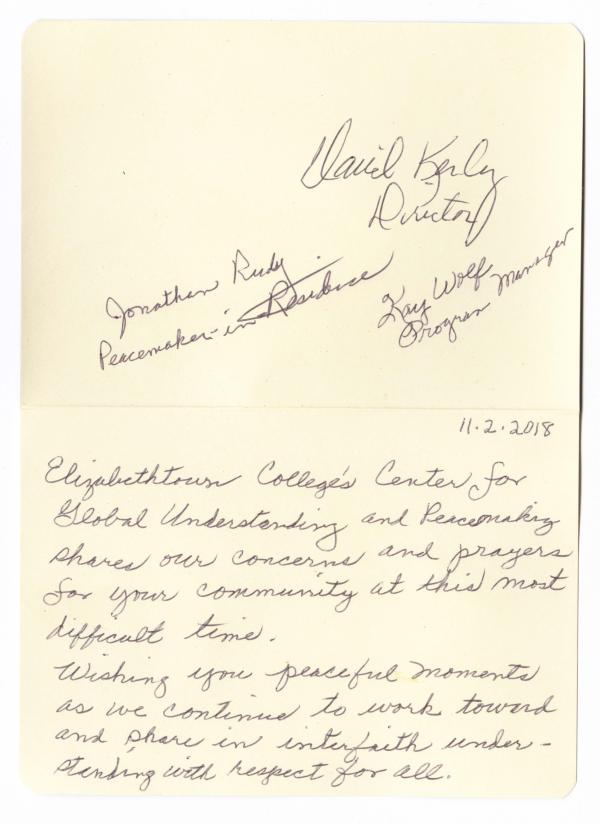 David Kenley
Director
Jonathan Rudy
Peacemaker-in-Residence
Kay Wolf
Program Manager
11.2.2018
Elizabethtown College's Center for
Global Understanding and Peacemaking
shares our concerns and prayers
for your community at this most
difficult time.
Wishing you peaceful moments
as we continue to work toward
and share in interfaith under-
standing with respect for all.